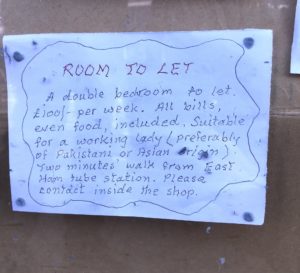 ROOM TO LET
A double bedroom to let.
£100/- per week. All bills,
even food, included. Suitable
for a working lady (preferably
of Pakistani or Asian origin).
Two minutes' walk from East
Ham tube station. Please
contact inside the shop.